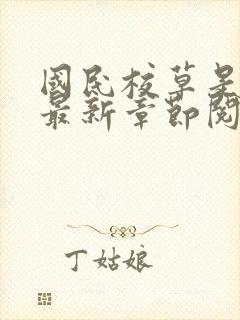 國民校草是
最新章節閱
丁姑娘